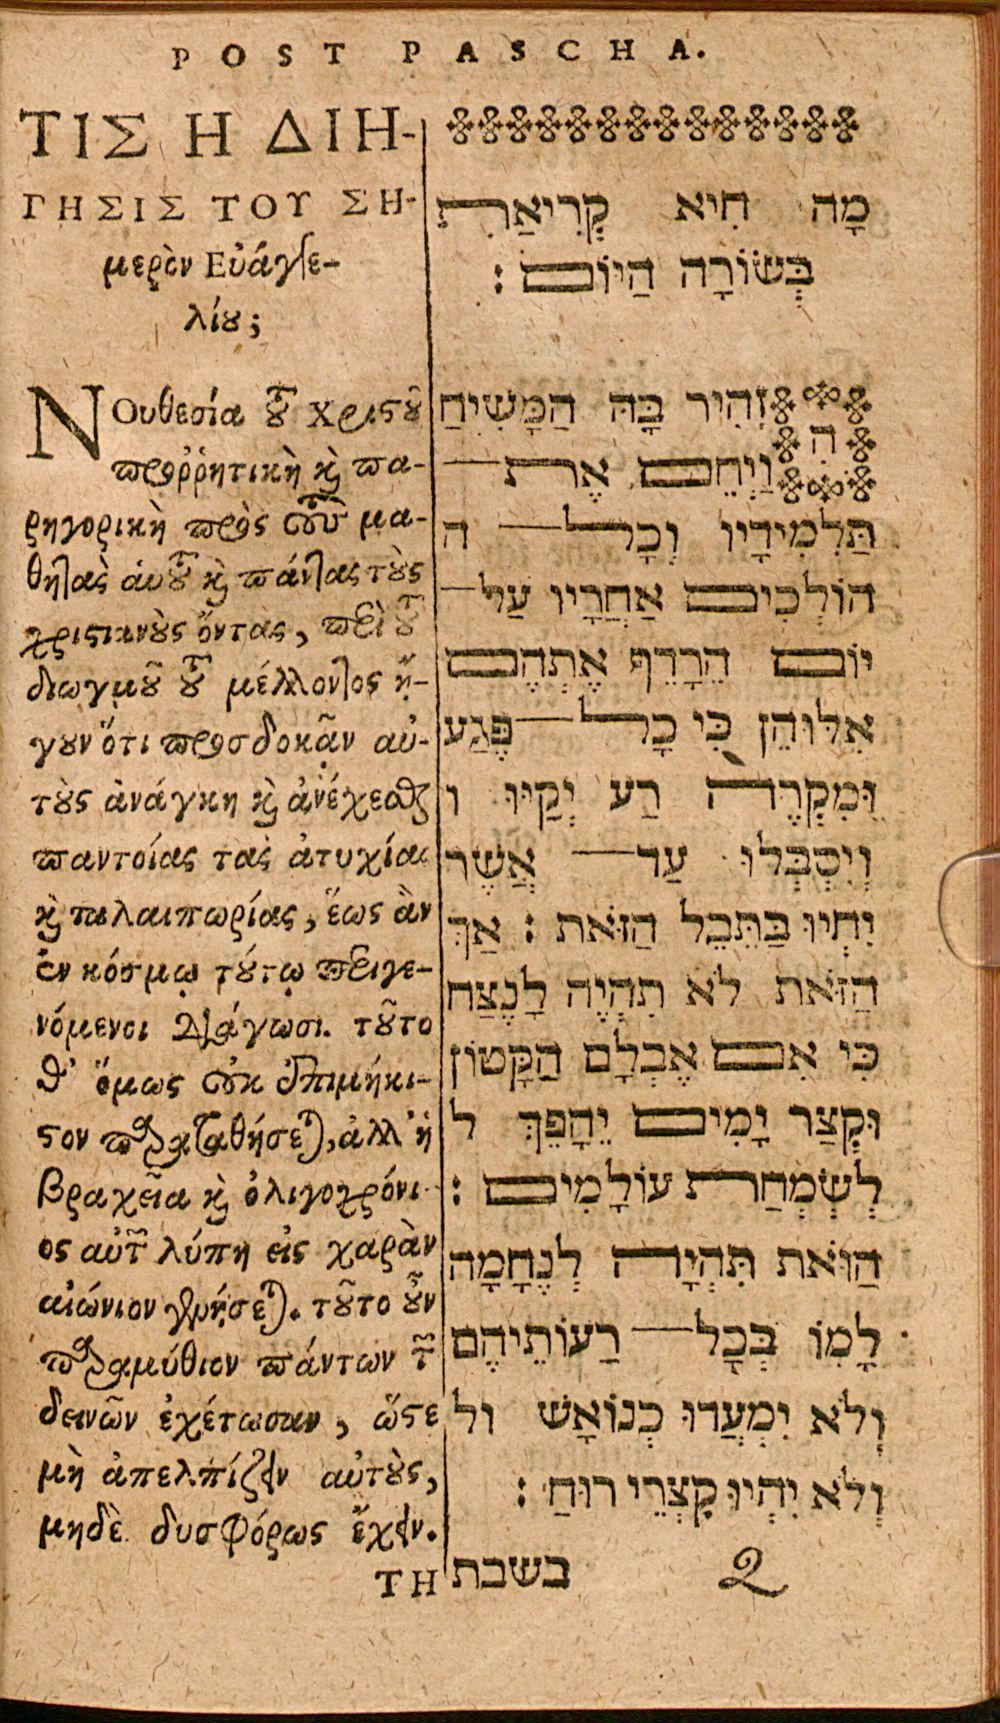 POST PASCHA.
ΤΙΣ Η ΔΙΗ-
ΓΗΣΙΣ ΤΟΥ ΣΗ-
μερὸν Εὐάγγε-
λίου;
ΝΟυθεσία τοῦ Χριστοῦ
προῤῥητικὴ καὶ πα-
ρηγορικὴ πρὸς τοὺς μα-
θητὰς αὐτοῦ καὶ πάντας τοὺς
χριστιανοὺς ὄντας, περὶ τοῦ
διωγμοῦ τοῦ μέλλοντος ἤ-
γουν ὅτι προσδοκᾶν αὐ-
τοὺς ἀνάγκη καὶ ἀνέχεσθαι
παντοίας τὰς ἀτυχίας
καὶ ταλαιπωρίας, ἕως ἂν
ἐν κόσμῳ τούτῳ περιγε-
νόμενοι διάγωσι. τοῦτο
δ' ὅμως οὐκ ἐπιμήκι-
στον παραταθήσεται, ἀλλ' ἡ
βραχεῖα καὶ ὀλιγοχρόνι
ος αὐτῶν λύπη εἰς χαρὰν
αἰώνιον γενήσεται. τοῦτο οὖν
παραμύθιον πάντων τῶν
δεινῶν ἐχέτωσαν, ὥστε
μὴ ἀπελπίζειν αὐτοὺς,
μηδὲ δυσφόρως ἔχειν.
ΤΗ
מָה חִיא קְרִיאַת
בְּשׂוֹרָה הַיּוֹם :
הִזְהִיר בָּהּ הַמָּשִׁיחַ
וַיְחֵם אֶת
תַּלְמִידָיו וְכָל ה
הוֹלְכִים אַחֲרָיו עַל
יוֹם הֵרָדֵף אֶתְהֶם
אֵלּוּהֵן כִּי כָל פֶּגַע
וּמִקְרֶה רַע יְקַיּוּ ו
וְיִסְבְּלוּ עַד אֲשֶׁר
יִחְיוּ בַּתֵּבֵל הַזֹּאת : אַךְ
הַזֹּאת לֹא תִהְיֶה לָנֶצַח
כִּי אִם אֶבְלָם הַקָּטוֹן
וּקְצַר יָמִים יֵהָפֵךְ ל
לְשִׂמְחַת עוֹלָמִים :
הַזֹּאת תִּהְיֶה לְנֶחָמָה
לָמוֹ בְּכָל רָעוֹתֵיהֶם
וְלֹא יִמְעֲדוּ כְנוֹאָשׁ ול
וְלֹא יִהְיוּ קִצְרֵי רוּחַ :
בשבת 2